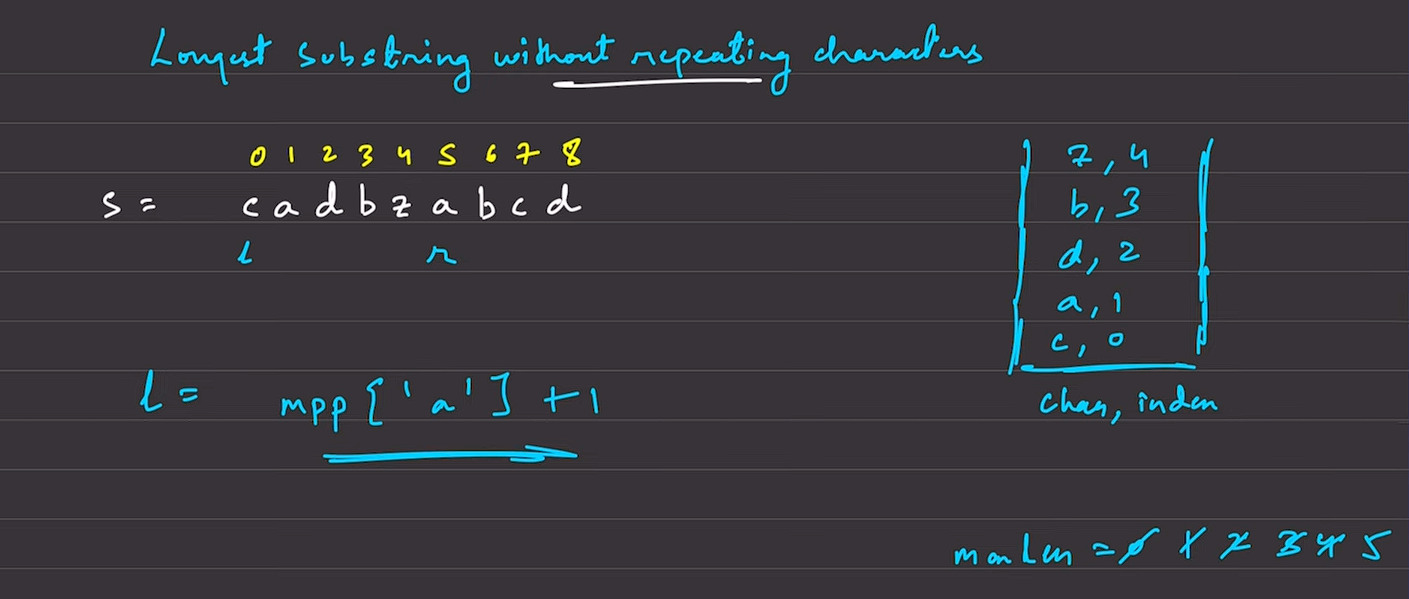 Longest substring without repeating characters
0 1 2 3 4 5 6 7 8
s = c a d b z a b c d
l r
z, 4
b, 3
d, 2
a, 1
c, 0
char, index
l = mpp['a'] + 1
maxLen = 0 1 2 3 4 5